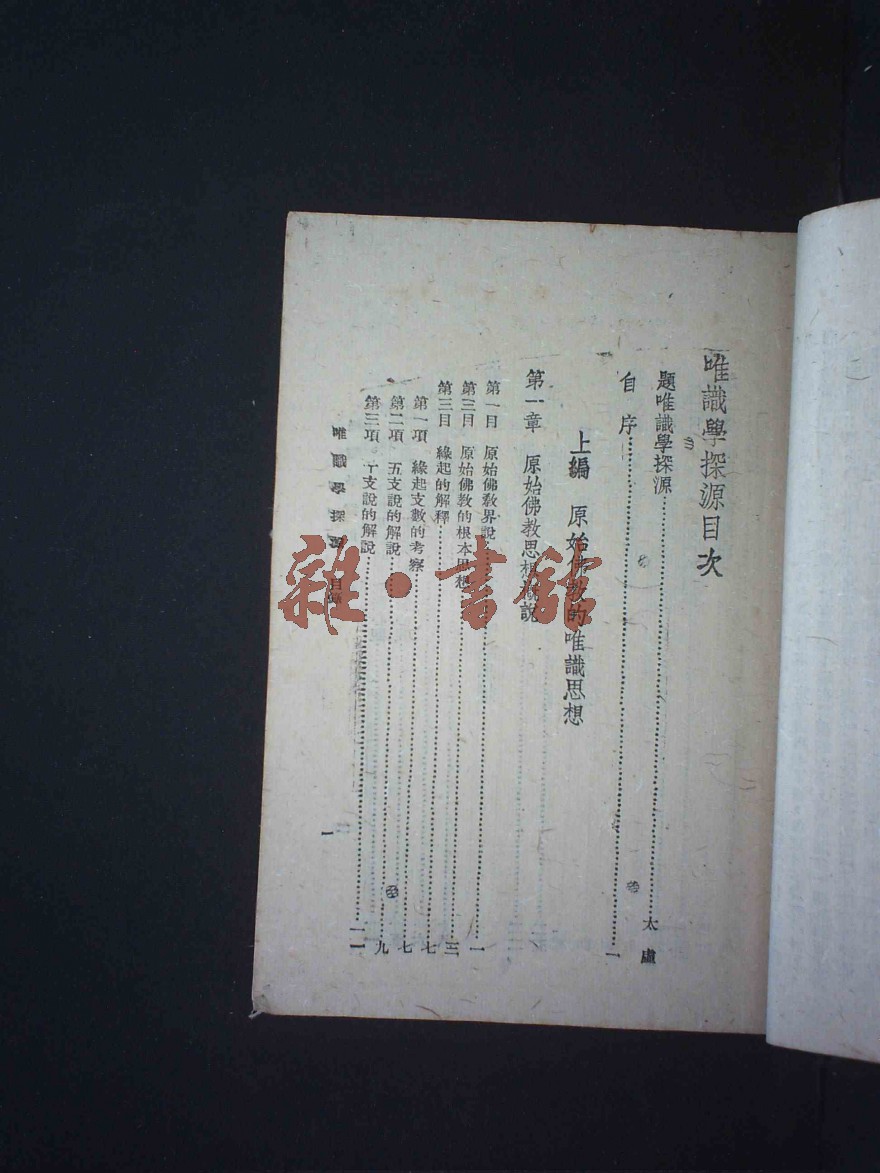 唯識學探源目次
題唯識學探源……太虛
自序……一
上編 原始佛教的唯識思想
第一章 原始佛教思想概說
第一目 原始佛教界說……一
第二目 原始佛教的根本思想……三
第三目 緣起的解釋……七
第一項 緣起支數的考察……七
第二項 五支說的解說……九
第三項 十支說的解說……一一
唯識學探源 目錄
一
雜·書館